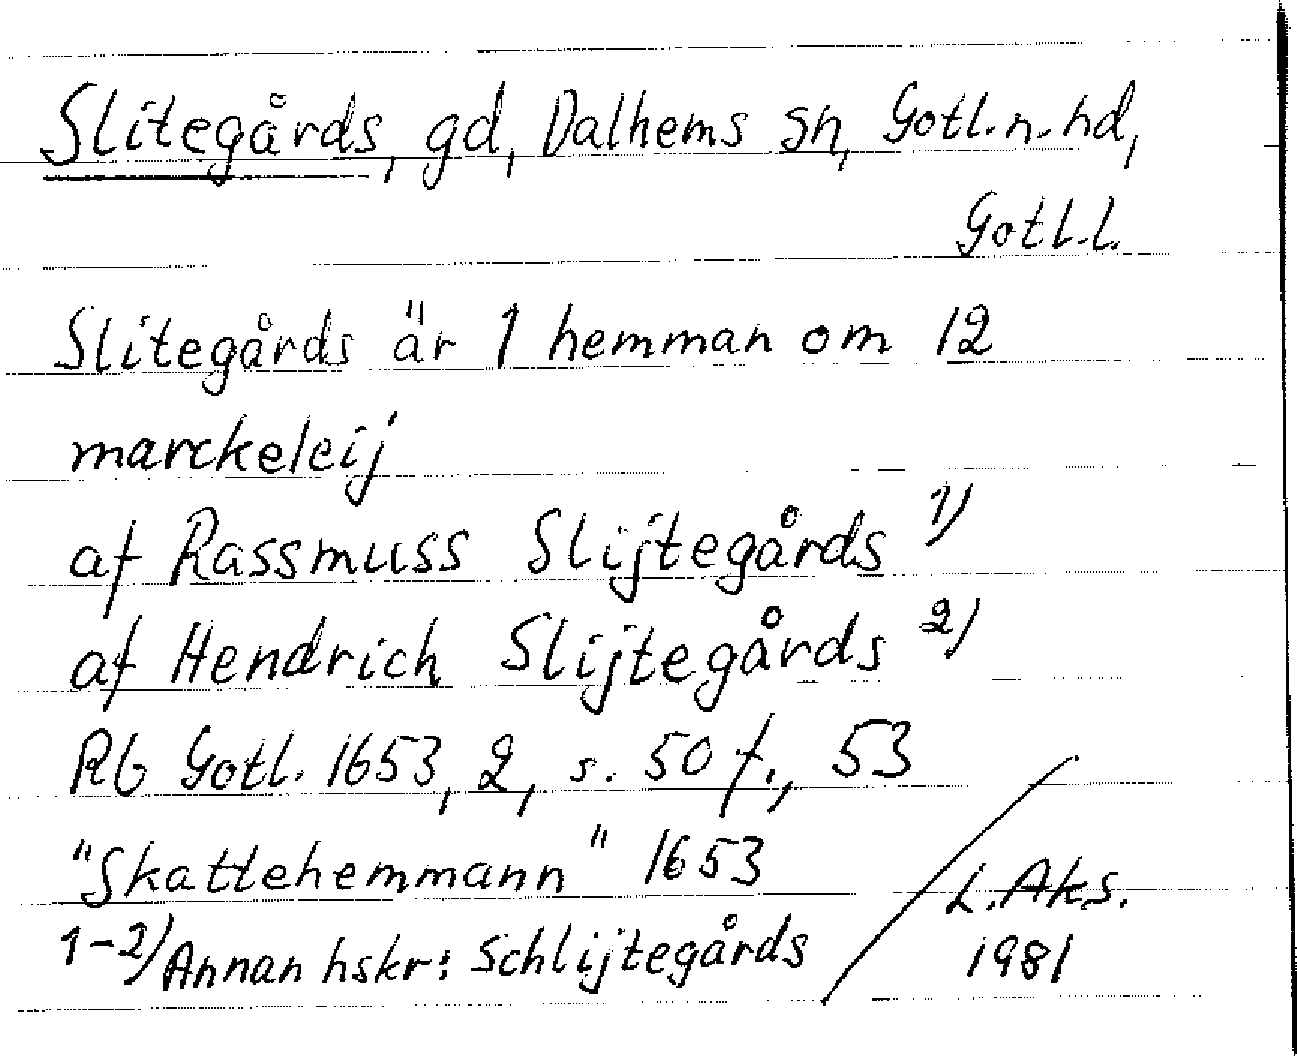 Slitegårds, gd, Dalhems sn, Gotl.n.hd,
Gotl.l.
Slitegårds är 1 hemman om 12
marckeleij
af Rassmuss Slijtegårds 1)
af Hendrich Slijtegårds 2)
Rb Gotl. 1653, 2, s. 50 f., 53
"Skattehemmann" 1653
1-2) Annan hskr: Schlijtegårds
L.Aks.
1981